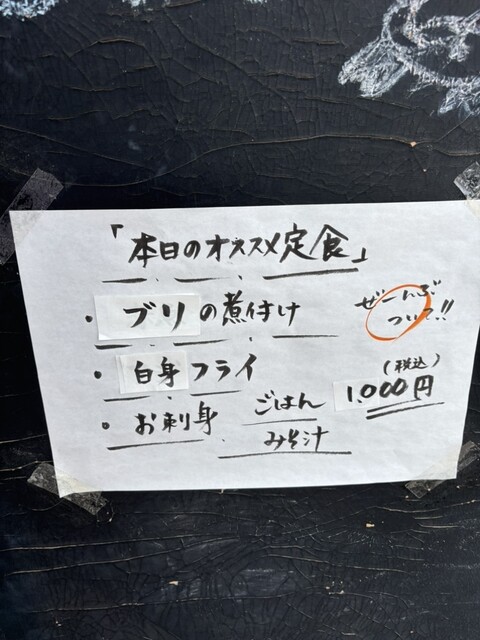 「本日のオススメ定食」
・ブリの煮付け
ぜーんぶ
ついて!!
・白身フライ
(税込)
1.000円
・お刺身
ごはん
みそ汁